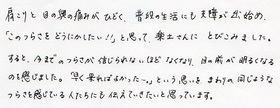 肩こりと目の奥の痛みがひどく、普段の生活にも支障が出始め、
「このつらさをどうにかしたい!!」と思って、楽士さんにとびこみました。
すると、今までのつらさが信じられないほどなくなり、目の前が明るくなる
のを感じました。「早く来ればよかった~。」という思いを、まわりの同じような
つらさを感じている人たちにも伝えていきたいと思っています。